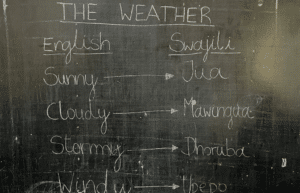 THE WEATHER
English Swajili
Sunny → Jua
Cloudy → Mawingua
Stormy → Dhoruba
Windy → Upepo